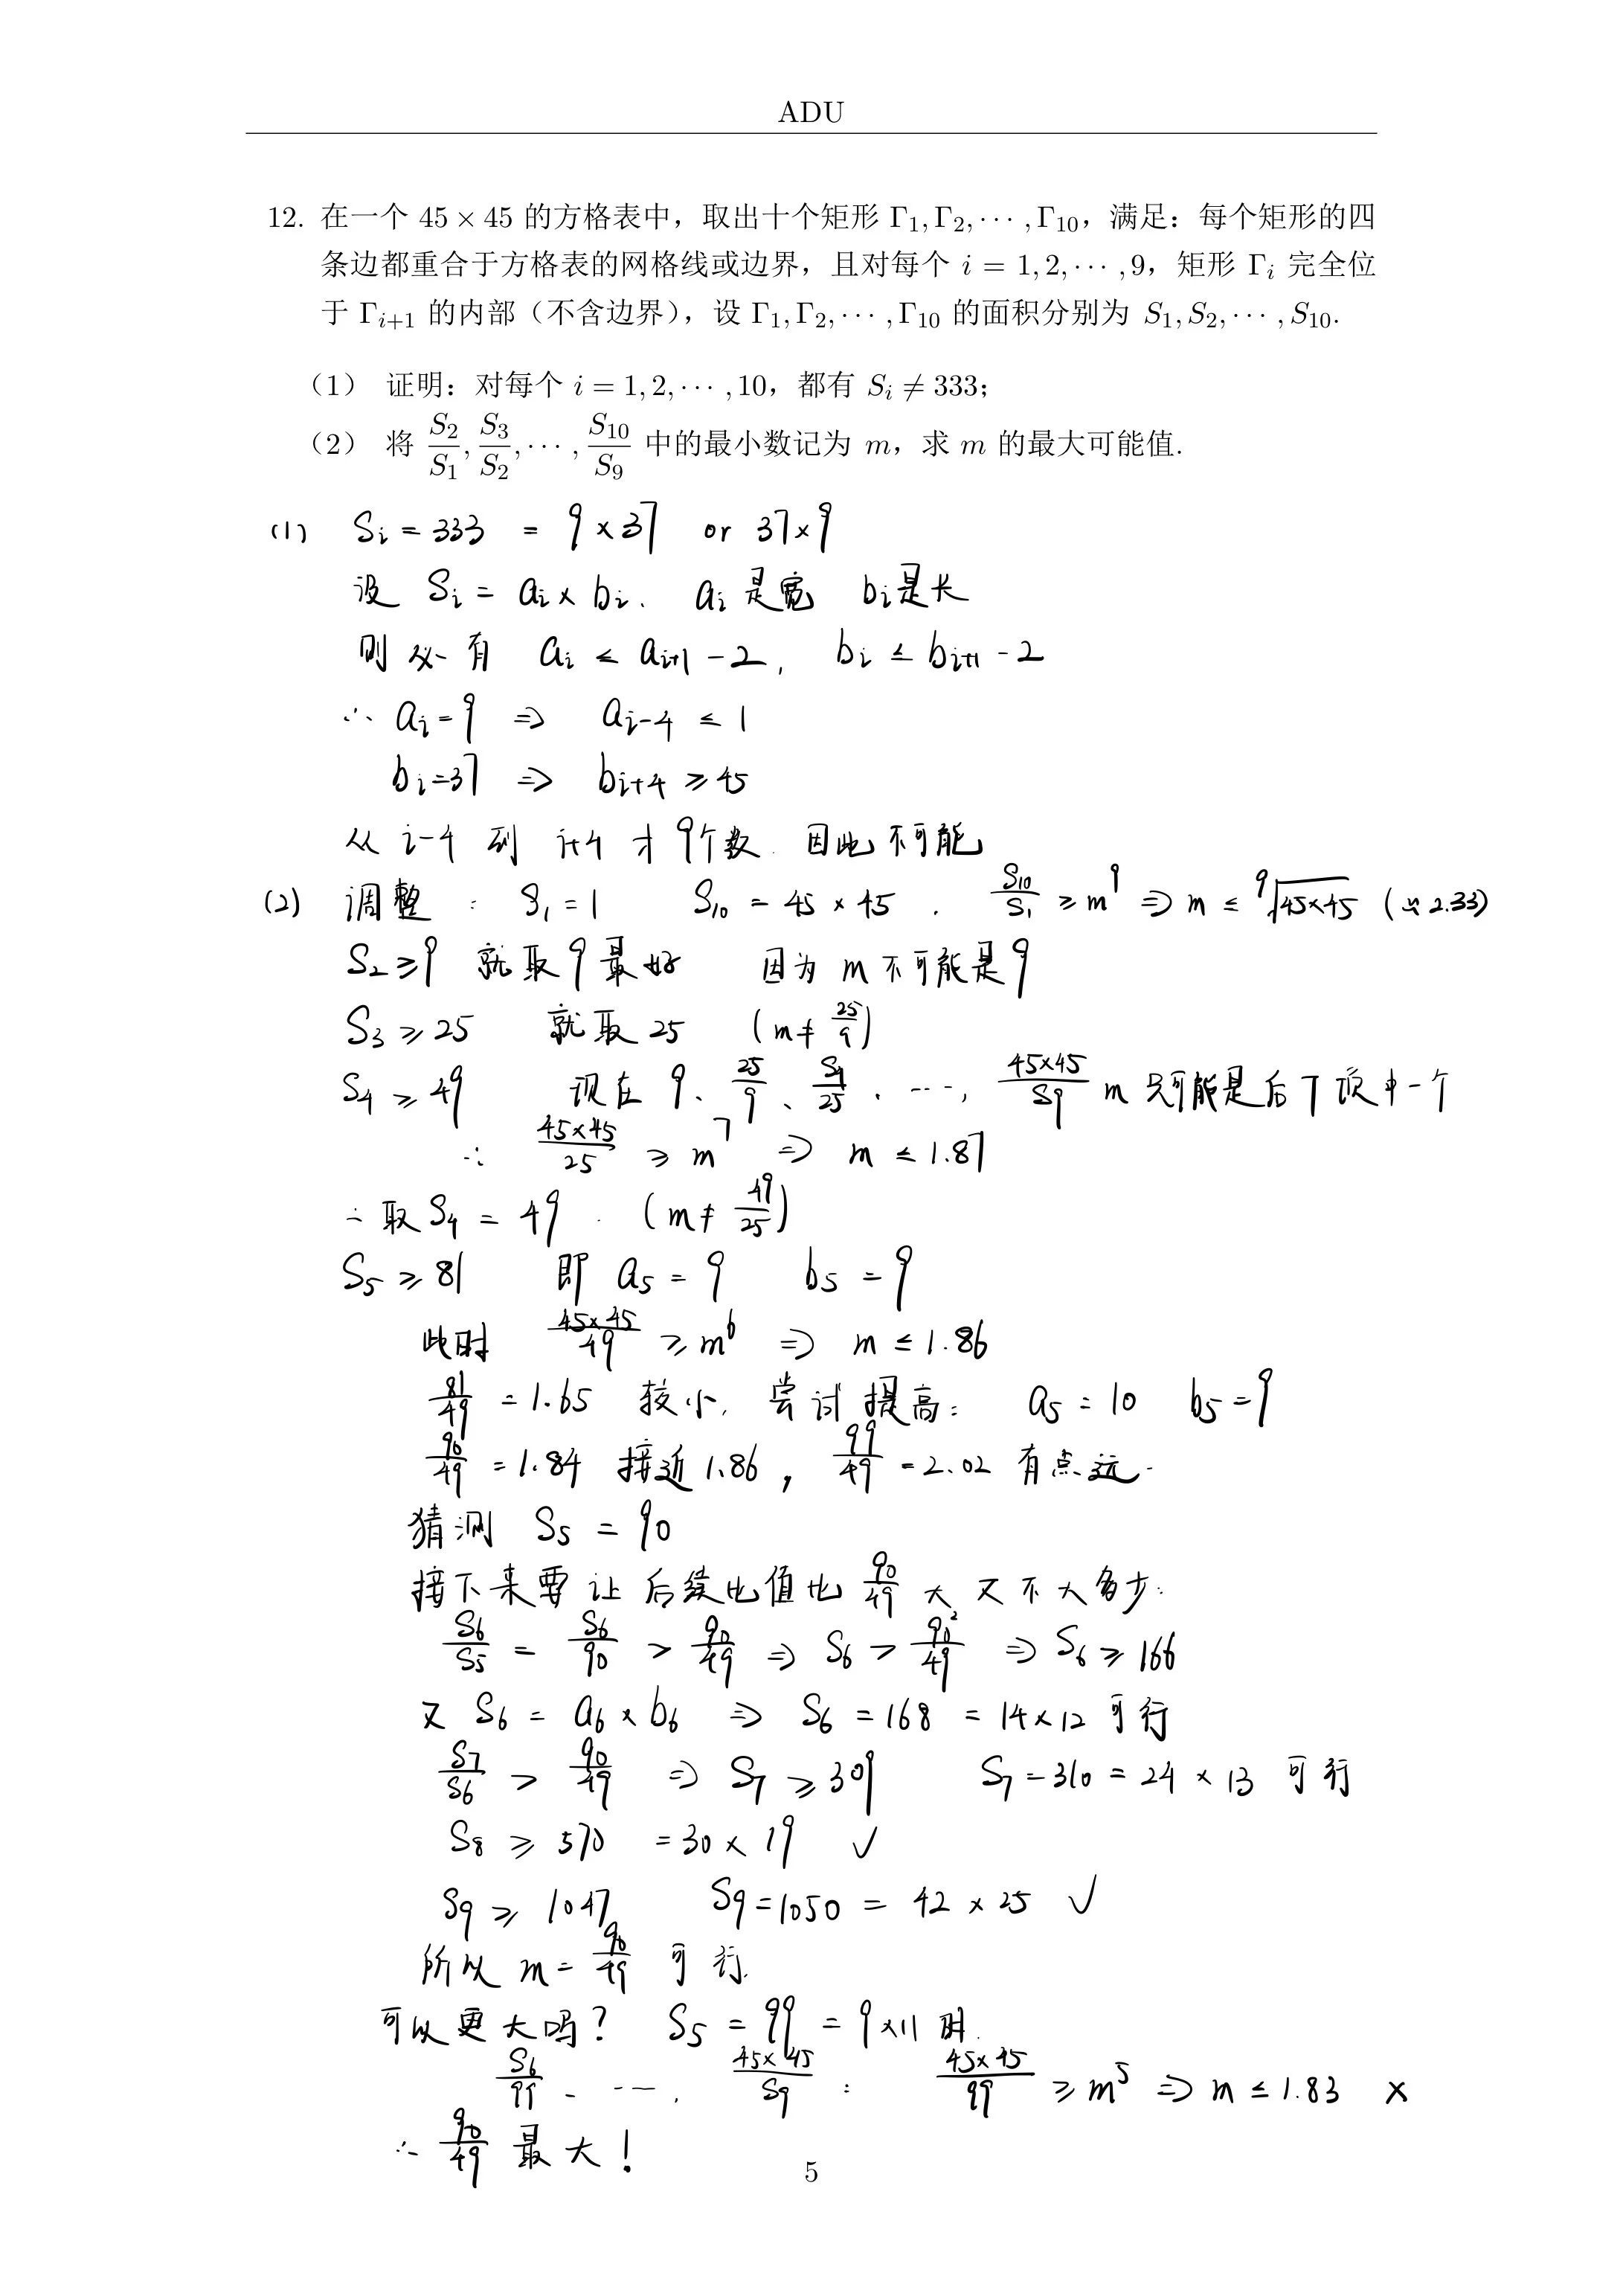 ADU
12. 在一个 45 × 45 的方格表中，取出十个矩形 Γ₁, Γ₂, ⋯ , Γ₁₀，满足：每个矩形的四
条边都重合于方格表的网格线或边界，且对每个 i = 1, 2, ⋯ , 9，矩形 Γᵢ 完全位
于 Γᵢ₊₁ 的内部（不含边界），设 Γ₁, Γ₂, ⋯ , Γ₁₀ 的面积分别为 S₁, S₂, ⋯ , S₁₀.
（1） 证明：对每个 i = 1, 2, ⋯ , 10，都有 Sᵢ ≠ 333；
（2） 将 S₂/S₁, S₃/S₂, ⋯ , S₁₀/S₉ 中的最小数记为 m，求 m 的最大可能值.
(1) Sᵢ = 333 = 9 × 37 or 37 × 9
设 Sᵢ = aᵢ × bᵢ. aᵢ 是宽 bᵢ 是长
则必有 aᵢ ≤ aᵢ₊₁ - 2, bᵢ ≤ bᵢ₊₁ - 2
∴ aᵢ = 9 ⇒ aᵢ₋₄ ≤ 1
bᵢ = 37 ⇒ bᵢ₊₄ ≥ 45
从 i-4 到 i+4 才 9个数. 因此不可能
(2) 调整: S₁ = 1 S₁₀ = 45 × 45 . S₁₀/S₁ ≥ m⁹ ⇒ m ≤ ⁹√(45×45) (≈ 2.33)
S₂ ≥ 9 就取 9 最好 因为 m 不可能是 9
S₃ ≥ 25 就取 25 (m ≠ 25/9)
S₄ ≥ 49 现在 9、25/9、S₄/25 . ⋯, 45×45/S₉ m 只可能是后 7 项中一个
∴ 45×45/25 ≥ m⁷ ⇒ m ≤ 1.87
∴ 取 S₄ = 49 . (m ≠ 49/25)
S₅ ≥ 81 即 a₅ = 9 b₅ = 9
此时 45×45/49 ≥ m⁶ ⇒ m ≤ 1.86
81/49 = 1.65 较小, 尝试提高: a₅ = 10 b₅ = 9
90/49 = 1.84 接近 1.86 , 99/49 = 2.02 有点远.
猜测 S₅ = 90
接下来要让后续比值比 90/49 大又不大多少:
S₆/S₅ = S₆/90 > 90/49 ⇒ S₆ > 90²/49 ⇒ S₆ ≥ 166
又 S₆ = a₆ × b₆ ⇒ S₆ = 168 = 14 × 12 可行
S₇/S₆ > 90/49 ⇒ S₇ ≥ 309 S₇ = 310 = 24 × 13 可行
S₈ ≥ 570 = 30 × 19 ✓
S₉ ≥ 1047 S₉ = 1050 = 42 × 25 ✓
所以 m = 90/49 可行.
可以更大吗? S₅ = 99 = 9 × 11 时.
S₆/99 、⋯ , 45×45/S₉ : 45×45/99 ≥ m⁵ ⇒ m ≤ 1.83 ×
∴ 90/49 最大!
5